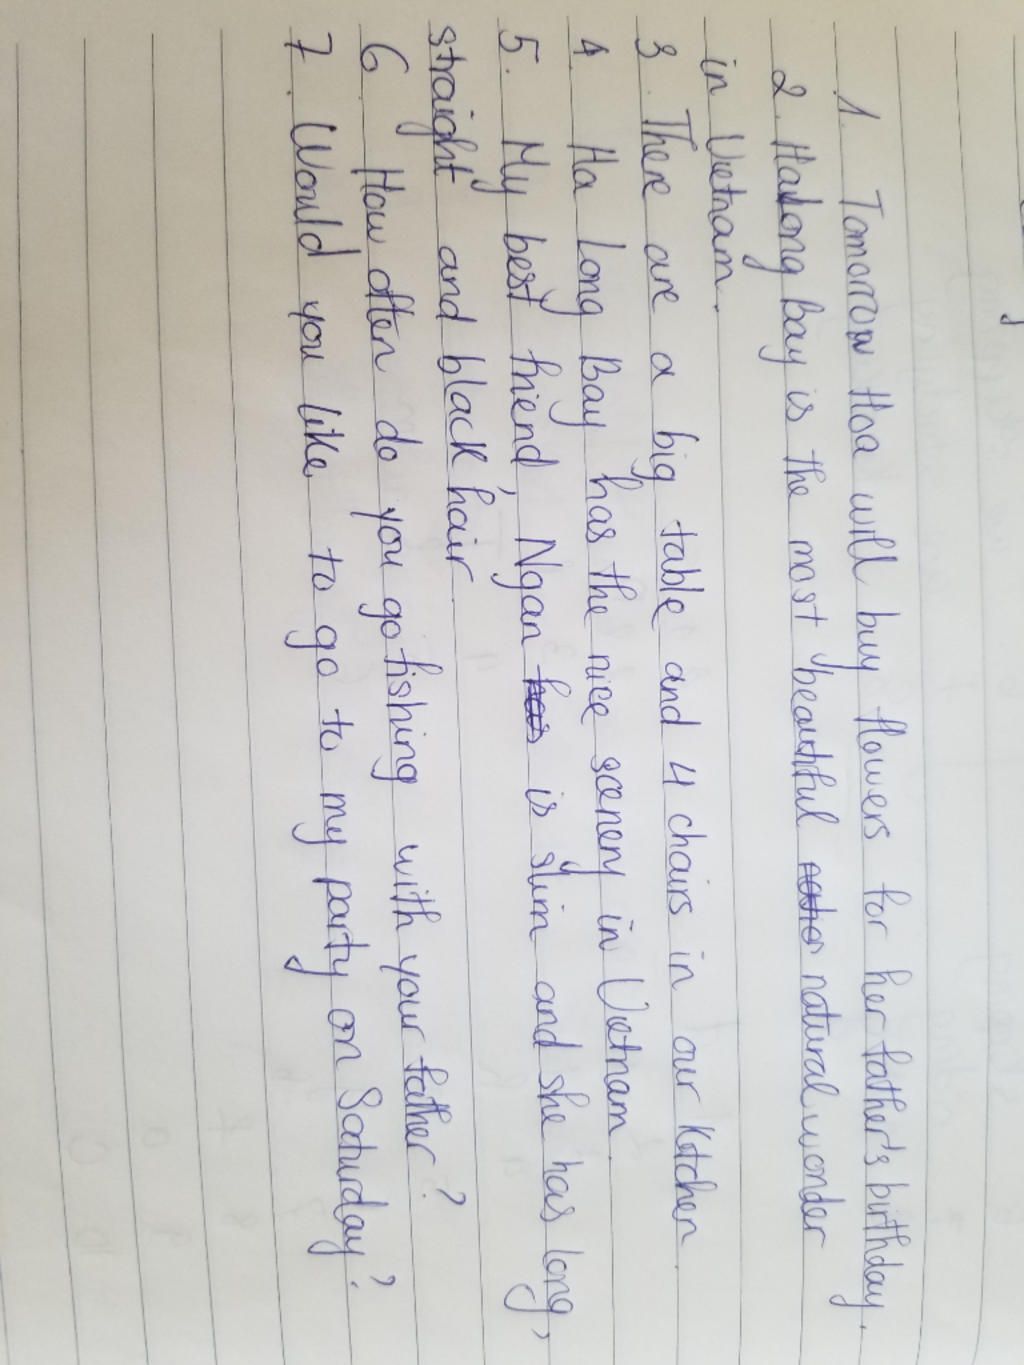 1. Tomorrow Hoa will buy flowers for her father's birthday.
2. Halong Bay is the most beautiful natural wonder
in Vietnam.
3. There are a big table and 4 chairs in our kitchen.
4. Ha Long Bay has the nice scenery in Vietnam.
5. My best friend, Ngan is slim and she has long,
straight and black hair.
6. How often do you go fishing with your father?
7. Would you like to go to my party on Saturday?